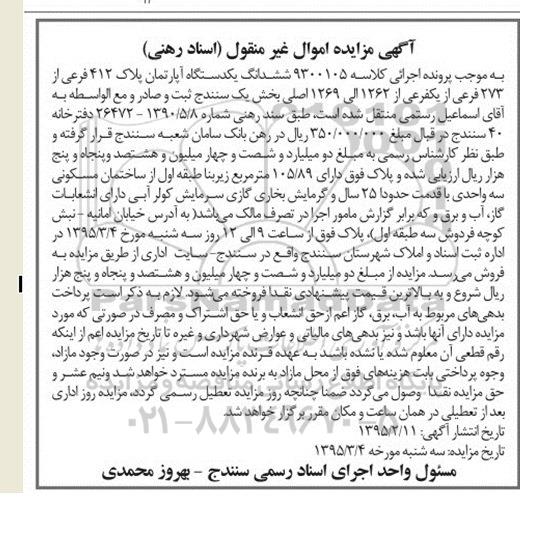 آگهی مزایده اموال غیر منقول (اسناد رهنی)
به موجب پرونده اجرائی کلاسه ۹۳۰۰۱۰۵ ششدانگ یکدستگاه آپارتمان پلاک ۴۱۲ فرعی از
۲۷۳ فرعی از یکفرعی از ۱۲۶۲ الی ۱۲۶۹ اصلی بخش یک سنندج ثبت و صادر و مع الواسطه به
آقای اسماعیل رستمی منتقل شده است، طبق سند رهنی شماره ۱۳۹۰/۵/۸ – ۲۶۴۷۲ دفترخانه
۴۰ سنندج در قبال مبلغ ۳۵۰/۰۰۰/۰۰۰ ریال در رهن بانک سامان شعبه سنندج قرار گرفته و
طبق نظر کارشناس رسمی به مبلغ دو میلیارد و شصت و چهار میلیون و هشتصد وپنجاه و پنج
هزار ریال ارزیابی شده و پلاک فوق دارای ۱۰۵/۸۹ مترمربع زیربنا طبقه اول از ساختمان مسکونی
سه واحدی با قدمت حدودا ۲۵ سال و گرمایش بخاری گازی سرمایش کولر آبی دارای انشعابات
گاز، آب و برق و که برابر گزارش مامور اجرا در تصرف مالک می‌باشد( به آدرس خیابان امانیه – نبش
کوچه فردوش سه طبقه اول)، پلاک فوق از ساعت ۹ الی ۱۲ روز سه شنبه مورخ ۱۳۹۵/۳/۴ در
اداره ثبت اسناد و املاک شهرستان سنندج واقع در سنندج– سایت اداری از طریق مزایده به
فروش می‌رسد. مزایده از مبلغ دو میلیارد و شصت و چهار میلیون و هشتصد و پنجاه و پنج هزار
ریال شروع و به بالاترین قیمت پیشنهادی نقدا فروخته می‌شود. لازم به ذکر است پرداخت
بدهی‌های مربوط به آب، برق، گاز اعم از حق انشعاب و یا حق اشتراک و مصرف در صورتی که مورد
مزایده دارای آنها باشد و نیز بدهی‌های مالیاتی و عوارض شهرداری و غیره تا تاریخ مزایده اعم از اینکه
رقم قطعی آن معلوم شده یا نشده باشد به عهده برنده مزایده است و نیز در صورت وجود مازاد،
وجوه پرداختی بابت هزینه‌های فوق از محل مازاد به برنده مزایده مسترد خواهد شد ونیم عشر و
حق مزایده نقدا وصول می‌گردد ضمنا چنانچه روز مزایده تعطیل رسمی گردد، مزایده روز اداری
بعد از تعطیلی در همان ساعت و مکان مقرر برگزار خواهد شد.
تاریخ انتشار آگهی: ۱۳۹۵/۲/۱۱
تاریخ مزایده: سه شنبه مورخه ۱۳۹۵/۳/۴
مسئول واحد اجرای اسناد رسمی سنندج – بهروز محمدی